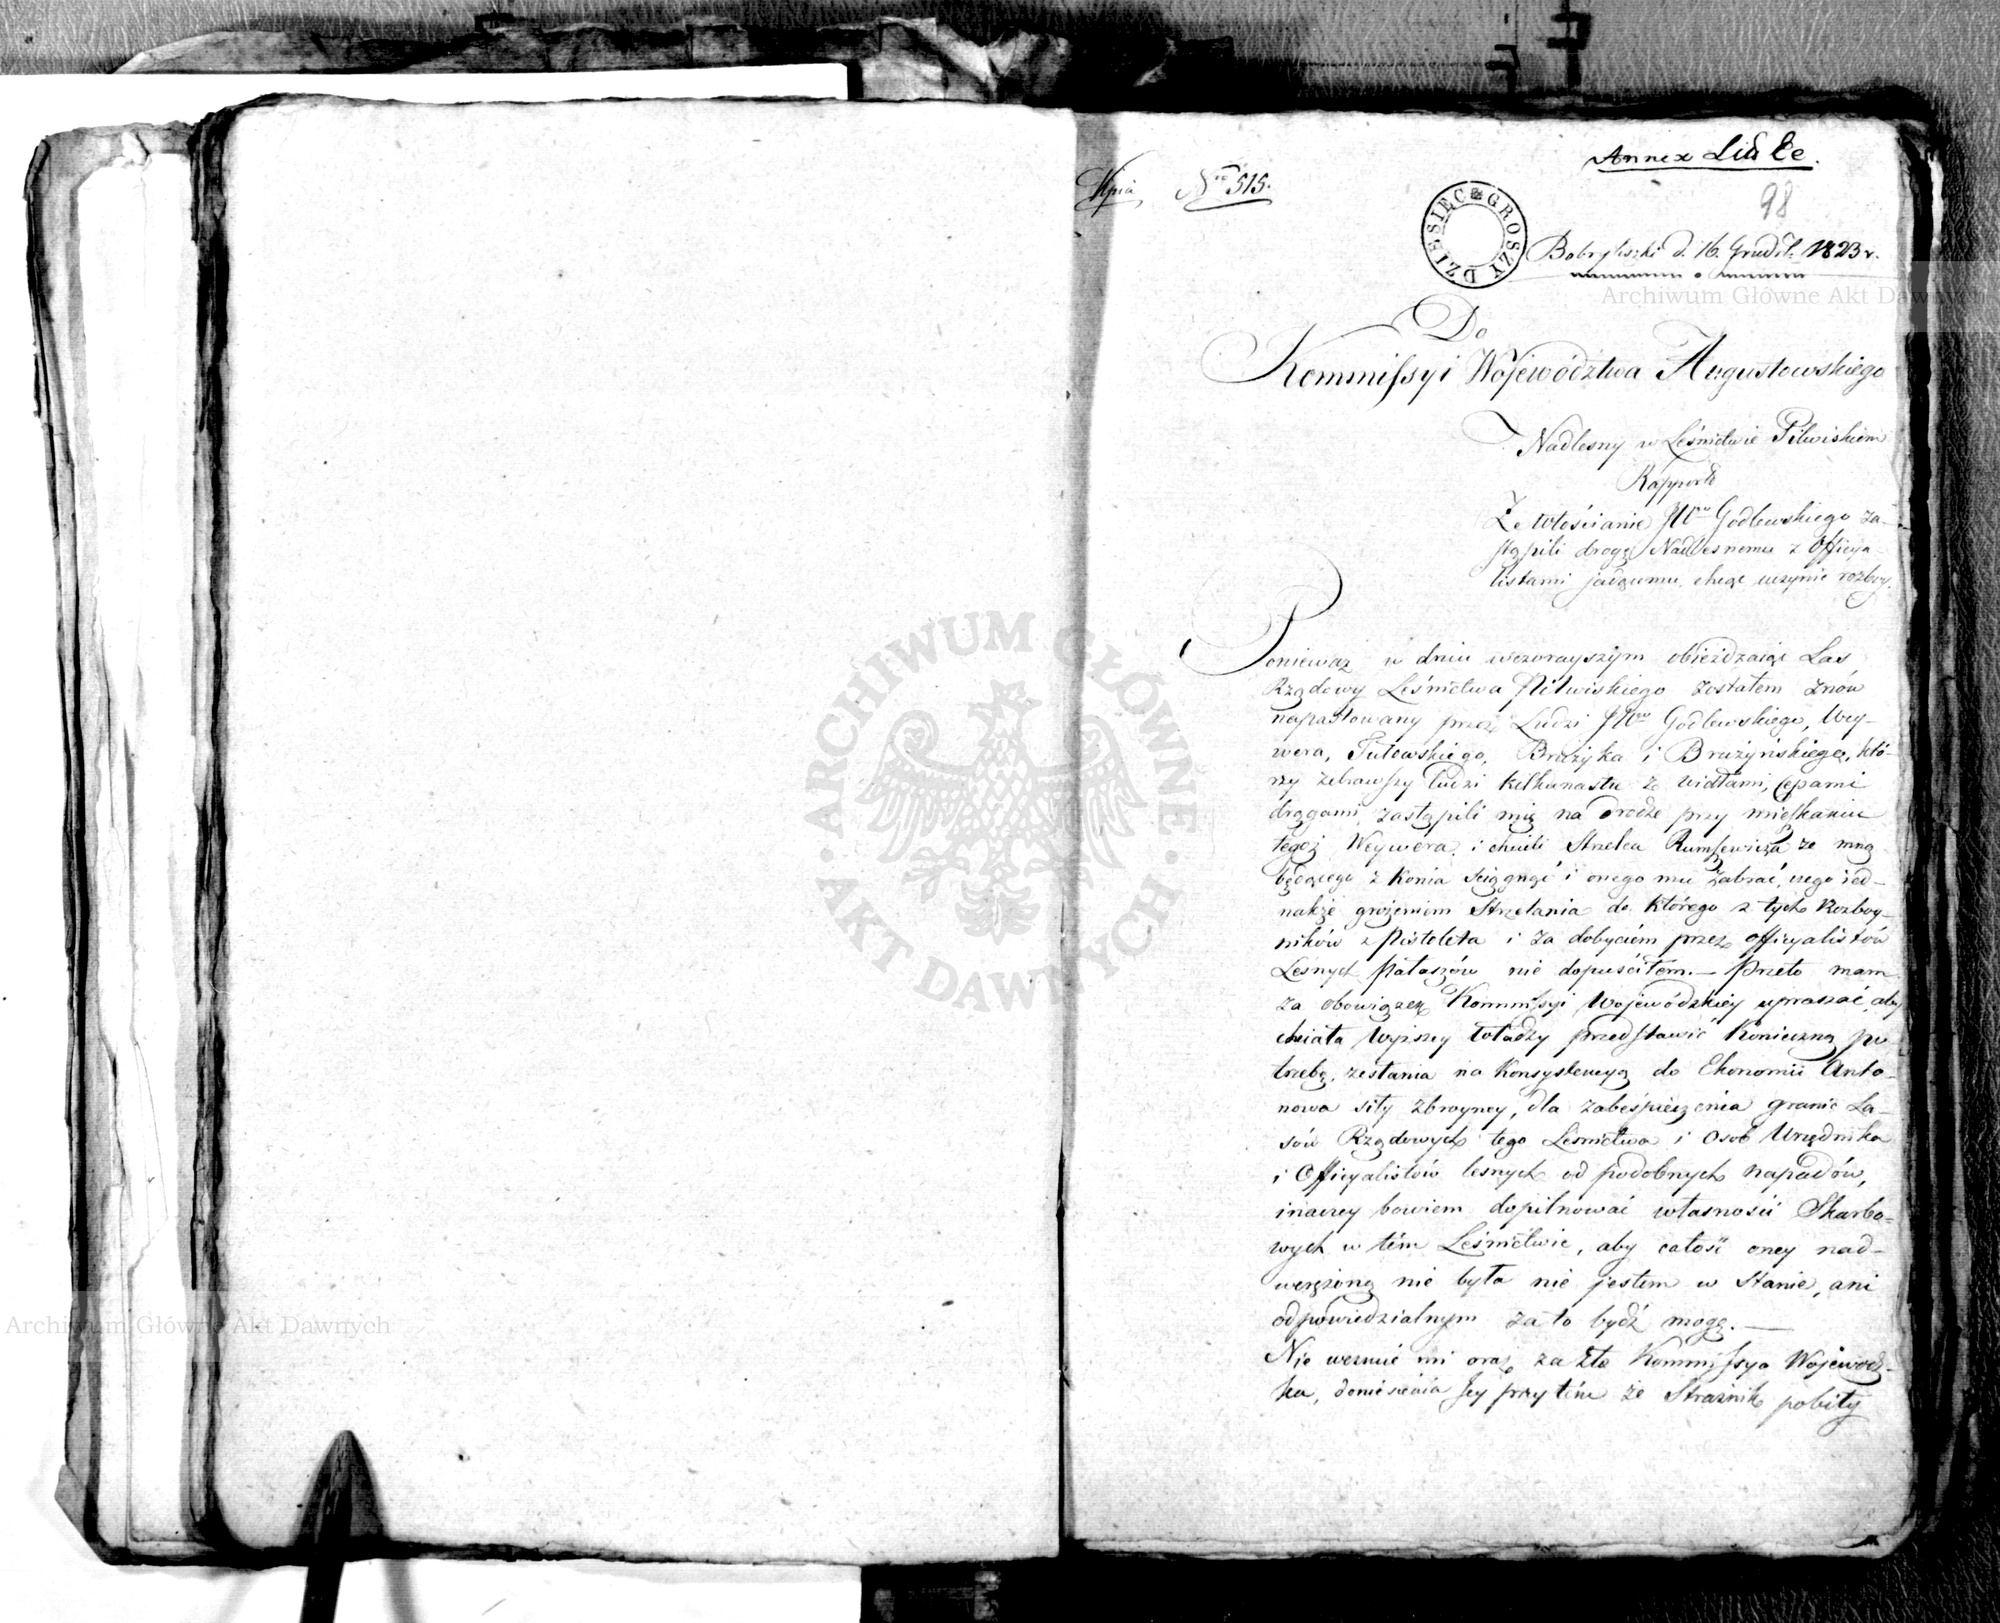 Annex Lit. Ee.
Kpia Nro 515.
98
DZIESIĘĆ GROSZY
Bobryliszki d. 16. Grudń. 1823 r.
Do
Kommissyi Województwa Augustowskiego
Nadlesny w Leśnictwie Pilwiskiem
Rapport
Że włościanie JWo Godlewskiego za-
stąpili drogę Nadlesnemu z Officya-
listami jadącemu, chcąc uczynić rozboy.
Ponieważ w dniu wczorayszym obieżdzaiąc Las
Rządowy Leśnictwa Pilwiskiego zostałem znów
napastowany przez Ludzi JWo Godlewskiego, Wey-
wera, Putowskiego, Brożyka i Brużyńskiego, któ-
rzy zebrawszy ludzi kilkunastu z widłami, cepami
drągami, zastąpili mię na drodze przy mieszkaniu
tegoż Weywera, i chcieli Strzelca Rumszewicza ze mną
będącego z konia sciągnąć i onego mu zabrać, czego ied-
nakże grożeniem Strzelania do którego z tych Rozboy-
ników z Pistoleta i za dobyciem przez officyalistów
Leśnych Pałaszów nie dopuściłem. — Przeto mam
za obowiązek Kommissyi Wojewódzkiey upraszać, aby
chciała Wyższey Władzy przedstawić Konieczną po
trzebę, zesłania na Konsystencyą do Ekonomii Anto-
nowa siły zbroyney, dla zabespieczenia granic La-
sów Rządowych tego Leśnictwa i osob Urzędnika
i Officyalistów lesnych od podobnych napadów,
inaczey bowiem dopilnować własności Skarbo-
wych w tém Leśnictwie, aby całość oney nad-
werężoną nie była nie jestem w Stanie, ani
odpowiedzialnym za to bydź mogę. —
Nie wezmie mi oraz za złe Kommissya Wojewódz-
ka, doniesienia Jey przytém że Strażnik pobity
Archiwum Główne Akt Dawnych
ARCHIWUM GŁÓWNE AKT DAWNYCH
Archiwum Główne Akt Dawnych